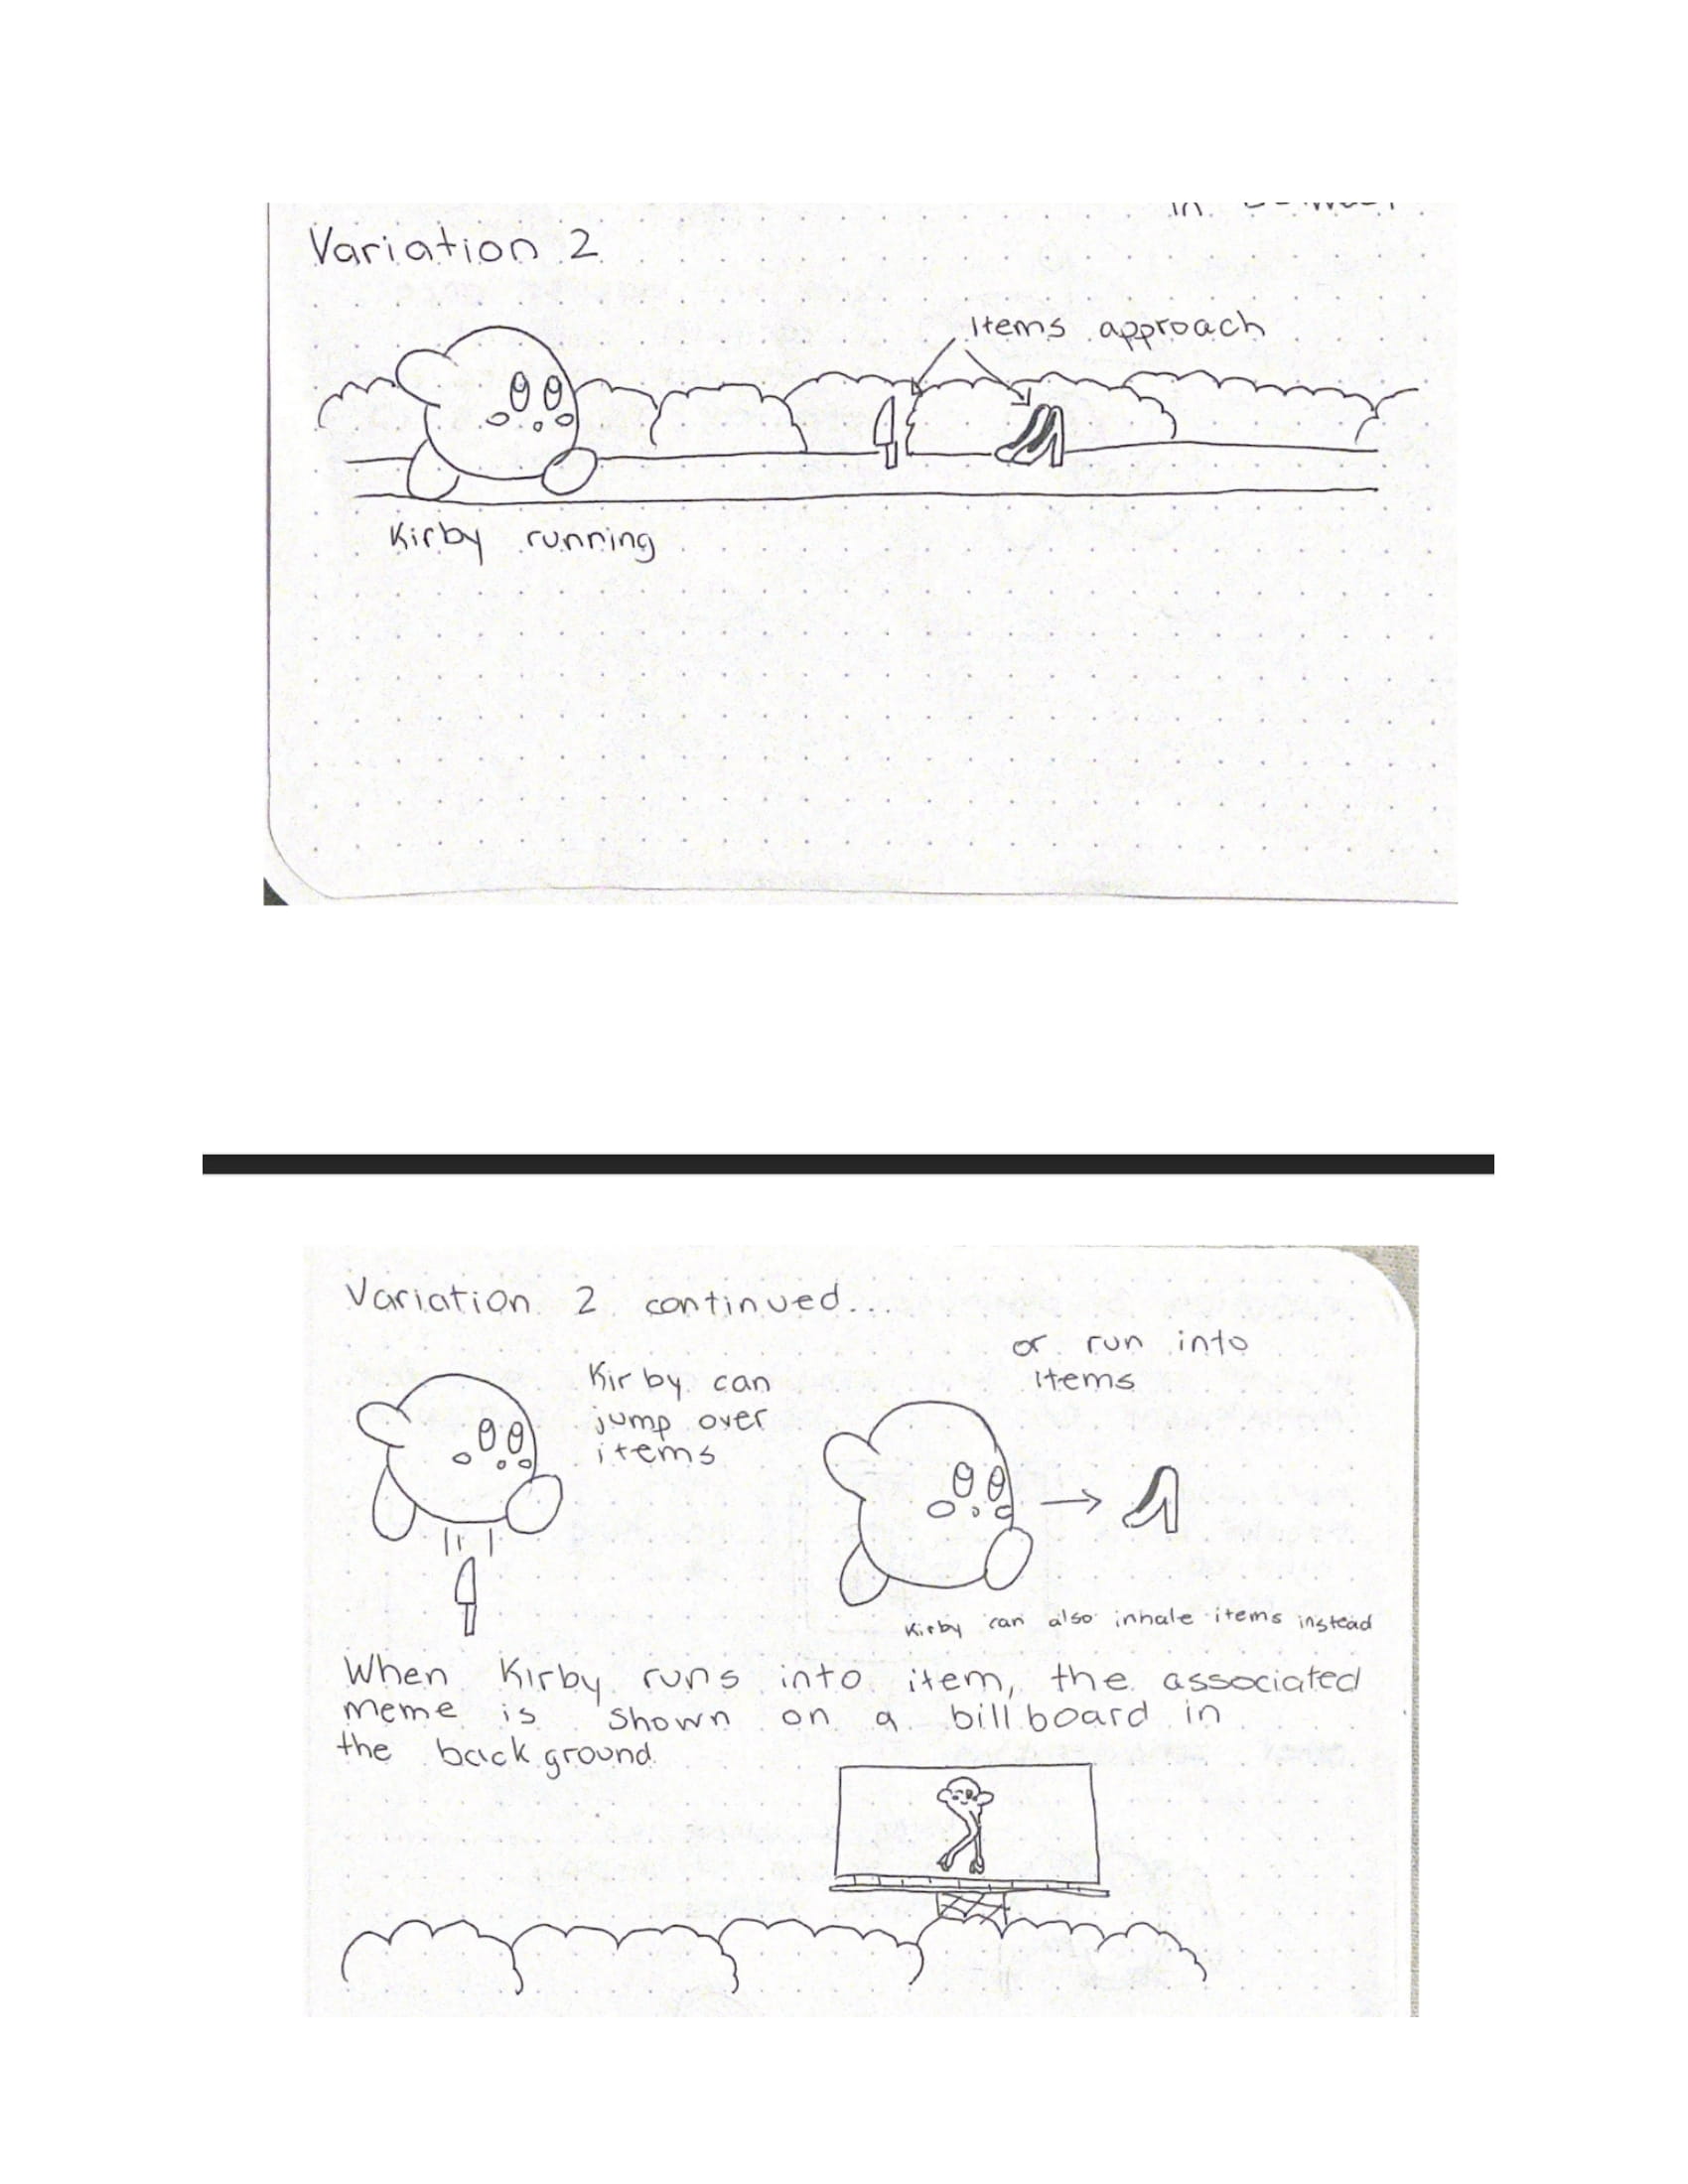 Variation 2
Items approach
Kirby running
Variation 2 continued...
or run into
items
Kirby can
jump over
items
Kirby can also inhale items instead
When Kirby runs into item, the associated
meme is shown on a billboard in
the background.